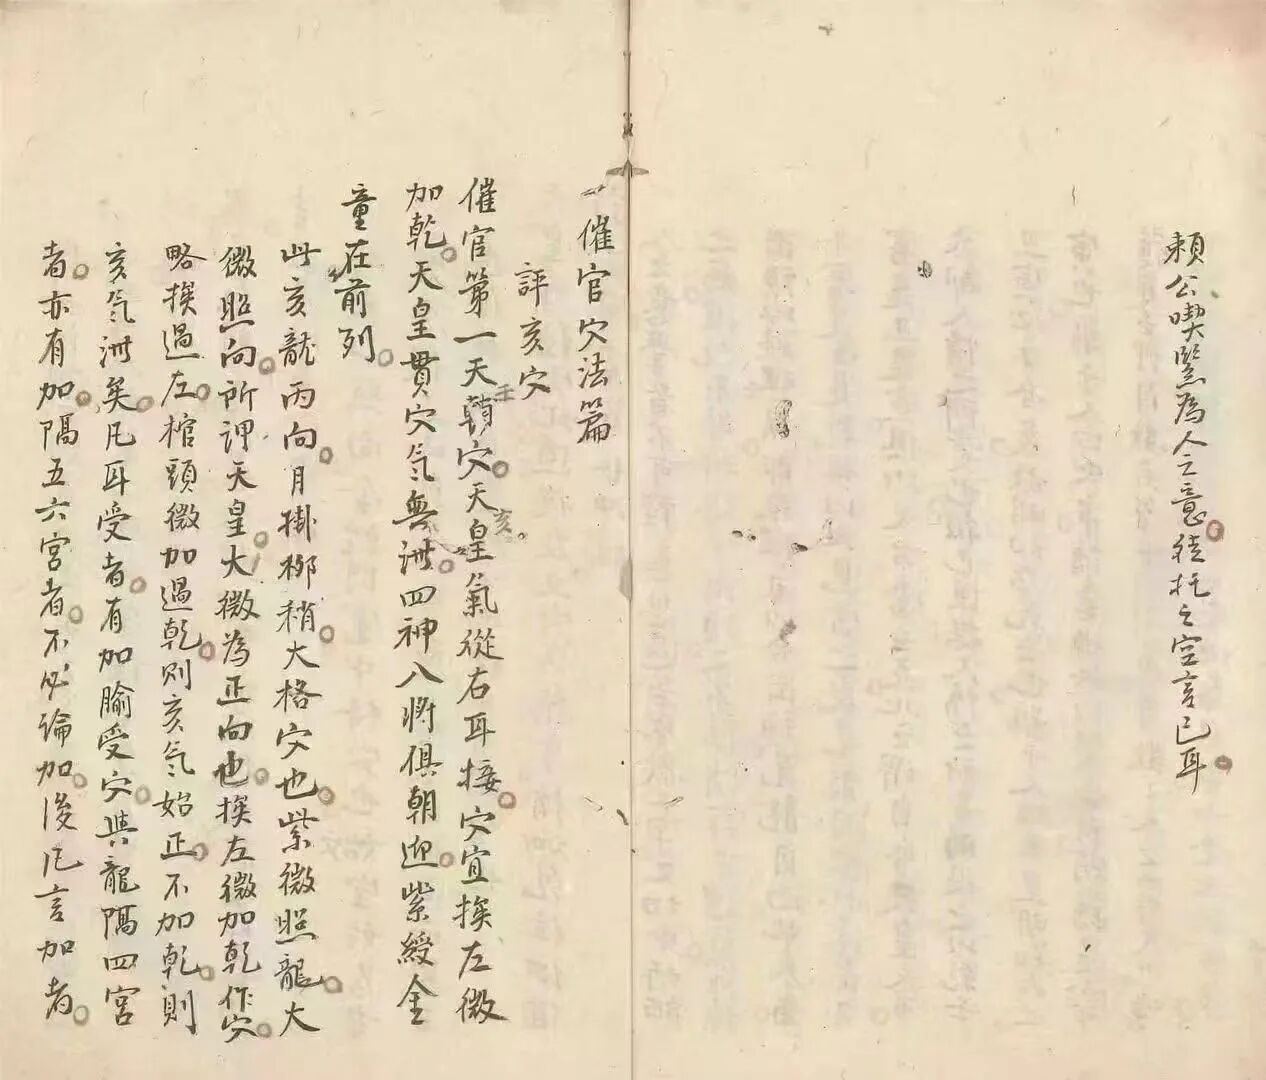 賴公喫緊為人之意。徒托之空言已耳。
一催官穴法篇
評亥穴
催官第一天輔穴。天皇氣從右耳接。穴宜挨左微
壬
亥。
加乾。天皇貫穴气無泄。四神八將俱朝迎。紫綬金
童在前列。
此亥龍丙向。月掛柳稍。大格穴也。紫微照龍。大
微照向。所謂天皇。大微為正向也。挨左微加乾作穴。
略挨過左。棺頭微加過乾。則亥气始正。不加乾。則
亥气泄矣。凡耳受者。有加腧受穴。與龍隔四宮
者。亦有加。隔五六宮者。不必論加。後凡言加者。